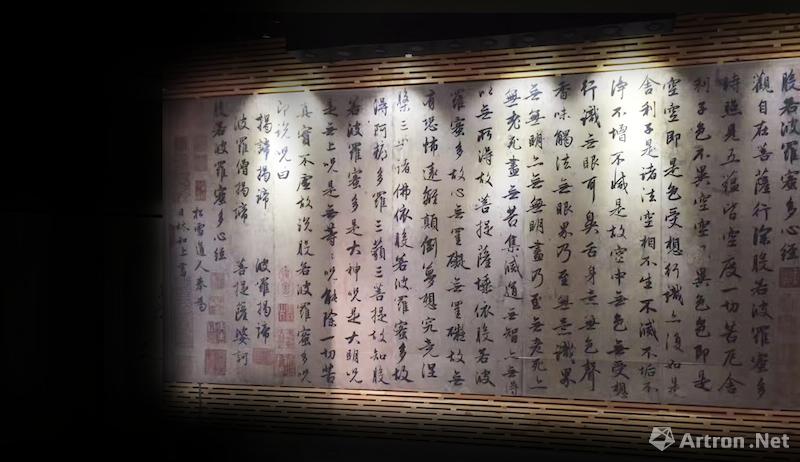 般若波羅蜜多心經
觀自在菩薩行深般若波羅蜜多
時照見五蘊皆空度一切苦厄舍
利子色不異空空不異色色即是
空空即是色受想行識亦復如是
舍利子是諸法空相不生不滅不垢不
淨不增不減是故空中無色無受想
行識無眼耳鼻舌身意無色聲
香味觸法無眼界乃至無意識界
無無明亦無無明盡乃至無老死亦
無老死盡無苦集滅道無智亦無得
以無所得故菩提薩埵依般若波
羅蜜多故心無罣礙無罣礙故無
有恐怖遠離顛倒夢想究竟涅
槃三世諸佛依般若波羅蜜多故
得阿耨多羅三藐三菩提故知般
若波羅蜜多是大神咒是大明咒
是無上咒是無等等咒能除一切苦
真實不虛故說般若波羅蜜多咒
即說咒曰
揭諦揭諦 波羅揭諦
波羅僧揭諦 菩提薩婆訶
般若波羅蜜多心經
松雪道人奉為
日林和上書
Artron.Net